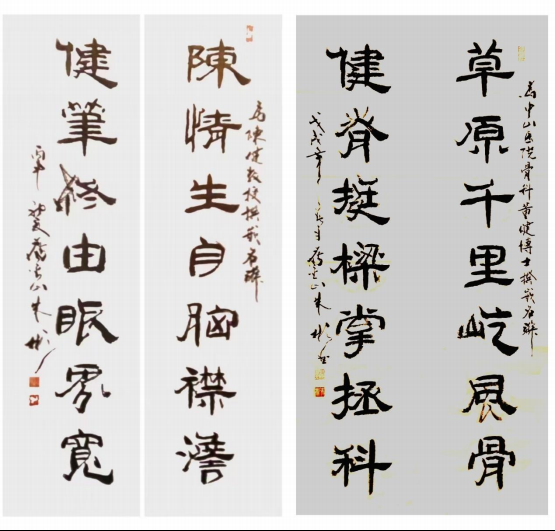 為陳健教授撰嵌名聯
陳情生自胸襟澹
健筆終由眼界寬
丙申初夏
為中山醫院骨科黃健博士撰嵌名聯
草原千里屹風骨
健脊挺樑掌拯科
戊戌年